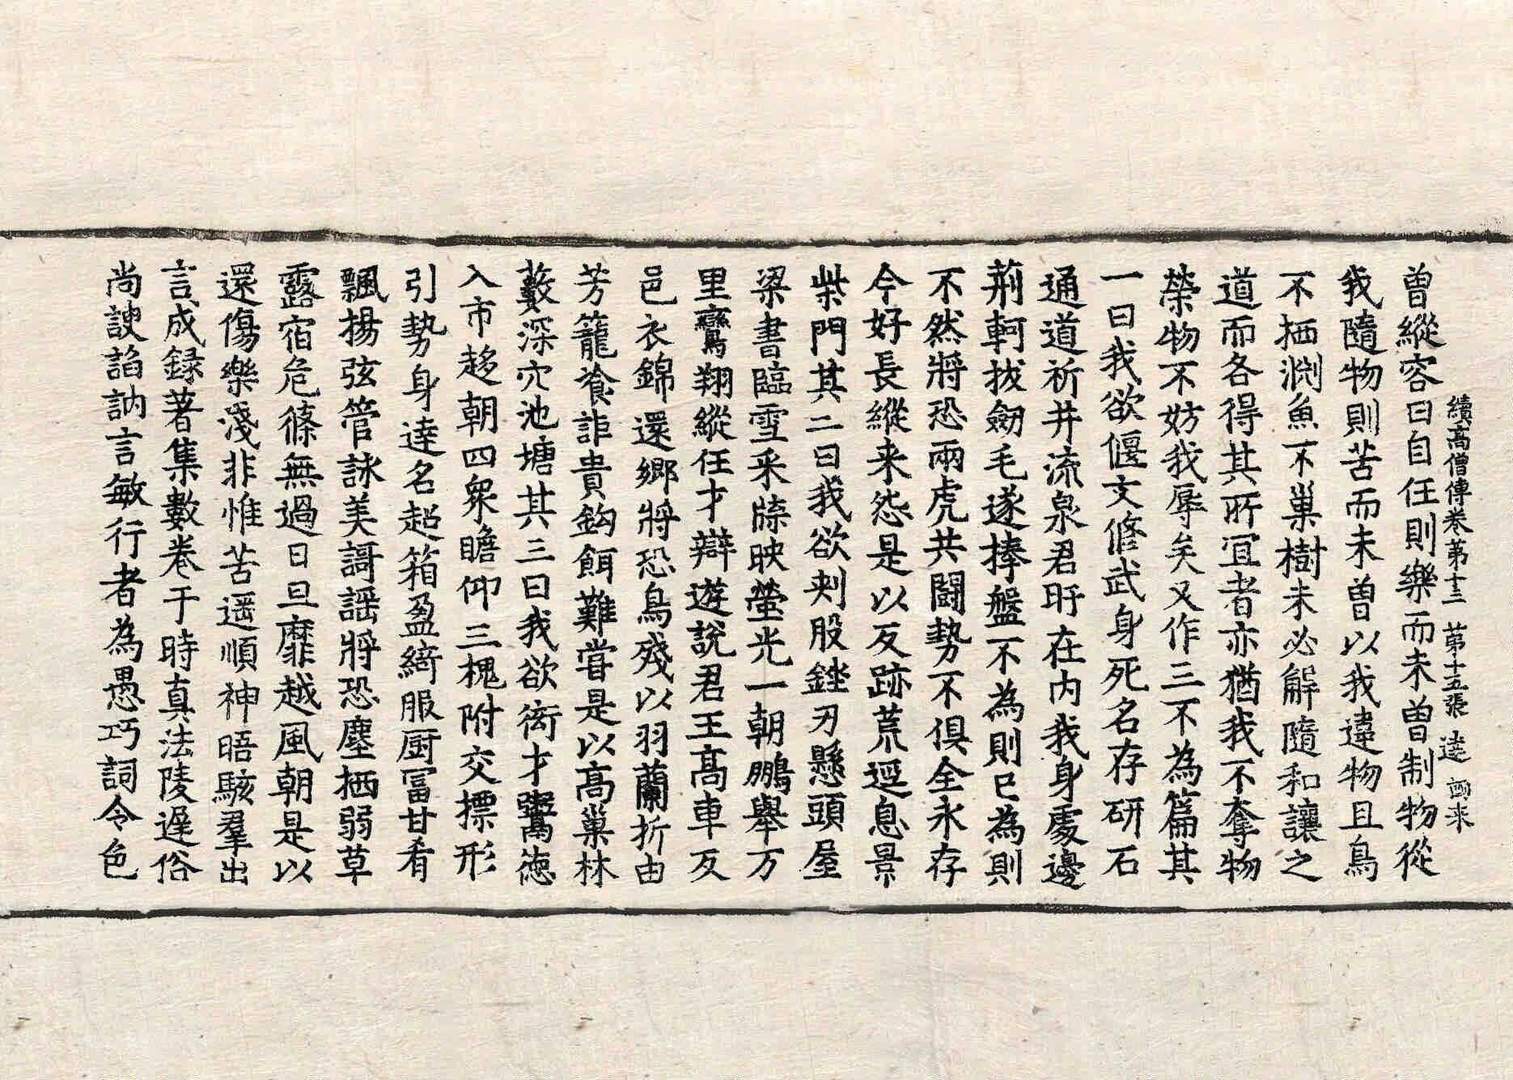 續高僧傳卷第十三 第十五張 逵
曽縱容曰自任則樂而未曽制物從
我隨物則苦而未曽以我違物且鳥
不栖渕魚不巢樹未必解隨和讓之
道而各得其所冝者亦猶我不奪物
榮物不妨我辱矣又作三不為篇其
一曰我欲偃文修武身死名存研石
通道祈井流泉君肝在内我身處邊
荊軻拔劒毛遂捧盤不為則已為則
不然將恐兩虎共鬪勢不俱全永存
今好長縱来怨是以反跡荒逕息景
柴門其二曰我欲刾股銼刃懸頭屋
梁書臨雪采牒映螢光一朝鵬舉万
里鸞翔縱任才辯遊說君王髙車反
邑衣錦還郷將恐鳥殘以羽蘭折由
芳籠飡詎貴鈎餌難甞是以髙巢林
藪深穴池塘其三曰我欲衒才鬻徳
入市趍朝四衆瞻仰三槐附交摽形
引勢身達名超箱盈綺服厨冨甘肴
飄揚弦管詠美謌謡將恐塵栖弱草
露宿危篠無過日旦靡越風朝是以
還傷樂淺非惟苦遥順神晤駭羣出
言成録著集數卷于時真法陵遅俗
尚謏諂訥言敏行者為愚巧詞令色